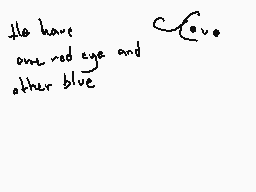 He have
one red eye and
other blue